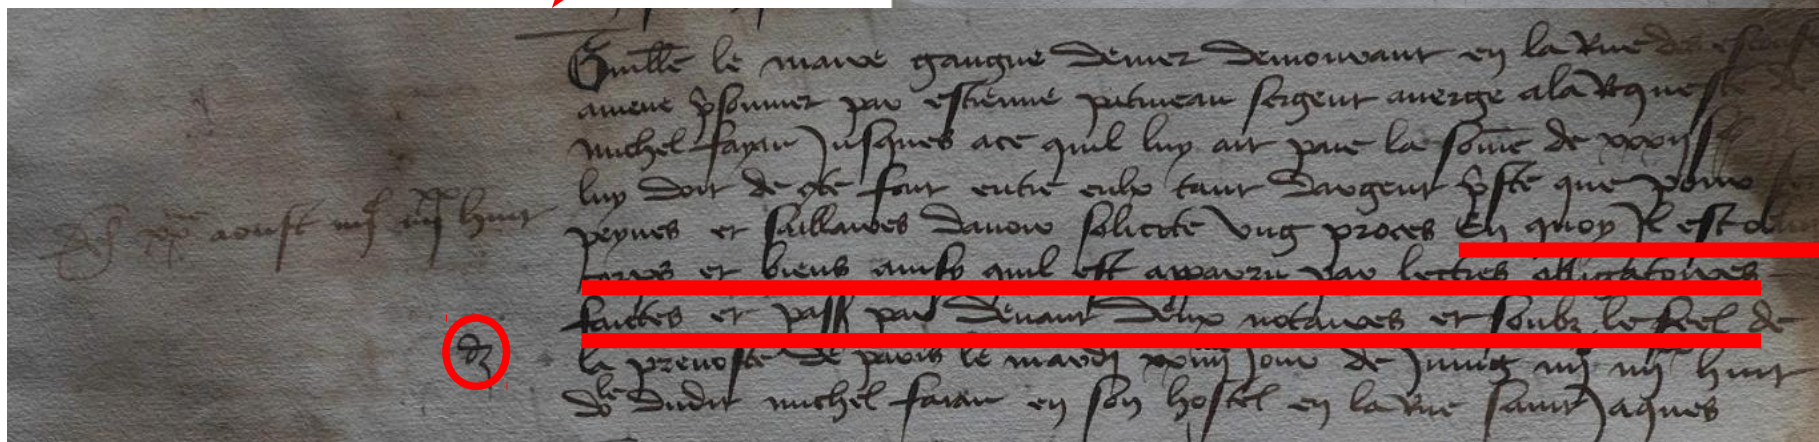 Guille le maire gaigne denier demourant en la Rue des
amene psonnier par estienne patineau sergent averge ala Req̃ste de
michel favar Jusques ace quil luy ait paie la some de xxxij s
luy doit de cpte fait entre eulx tant dargent pste que pour
peynes et sallaires davoir solicite vng proces En quoy Jl est oblig
corps et biens ainsy quil est apparu par lectres obligatoires
faictes et pass par devant deux notaires et soubz le seel de
la prevoste de paris le mardj xxiiij Jour de Juing iiij iiij huit
dle dudit michel favar en son hostel en la Rue saint Jaques
aoust iiij iiij huit